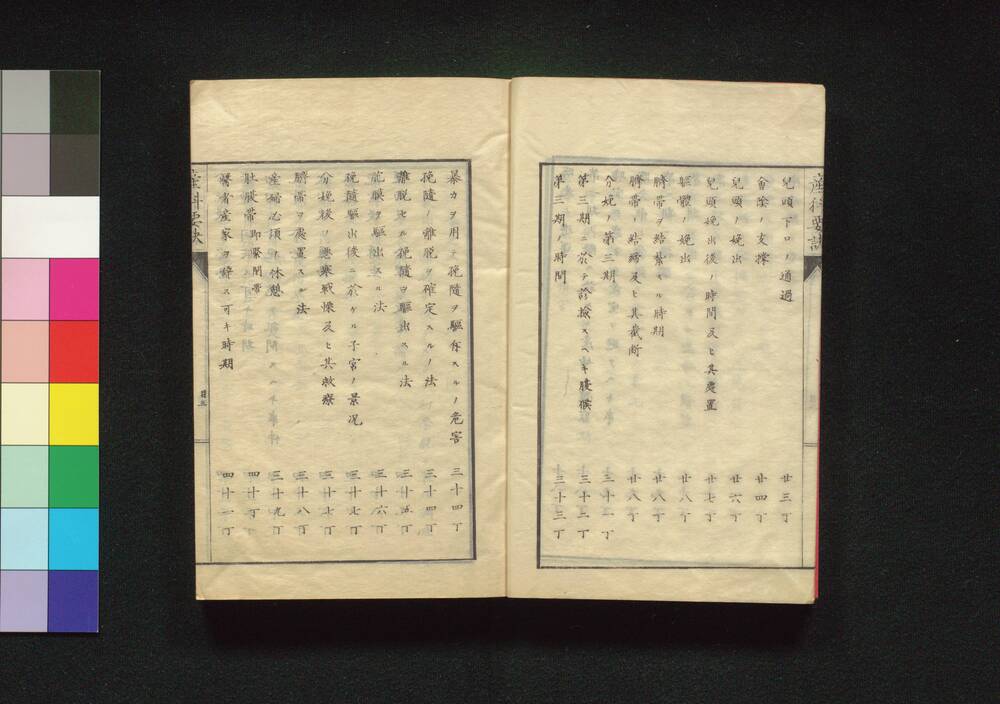 産科要訣
兒頭下口ノ通過 廿三丁
會陰ノ支撑 廿四丁
兒頭ノ娩出 廿六丁
兒頭娩出後ノ時間及ヒ其處置 廿七丁
軀體ノ娩出 廿八丁
臍帶ヲ結紮スル時期 廿八丁
臍帶ノ結縛及ヒ其截斷 廿八丁
分娩ノ第三期 三十一丁
第三期ニ於テ診撿スヘキ腹候 三十二丁
第三期ノ時間 三十三丁
暴力ヲ用テ挽隨ヲ驅除スルノ危害 三十四丁
挽隨ノ離脱ヲ確定スルノ法 三十四丁
離脱セル挽隨ヲ驅出スル法 三十五丁
脱膜ヲ驅出スル法 三十六丁
挽隨驅出後ニ於ケル子宮ノ景况 三十七丁
分娩後ノ悪寒戦慄及ヒ其救療 三十七丁
臍帶ヲ處置スル法 三十八丁
産婦必須ノ休憩 三十九丁
肚腹帶即緊閉帶 四十丁
醫者産家ヲ辞ス可キ時期 四十一丁
産科要訣
目三